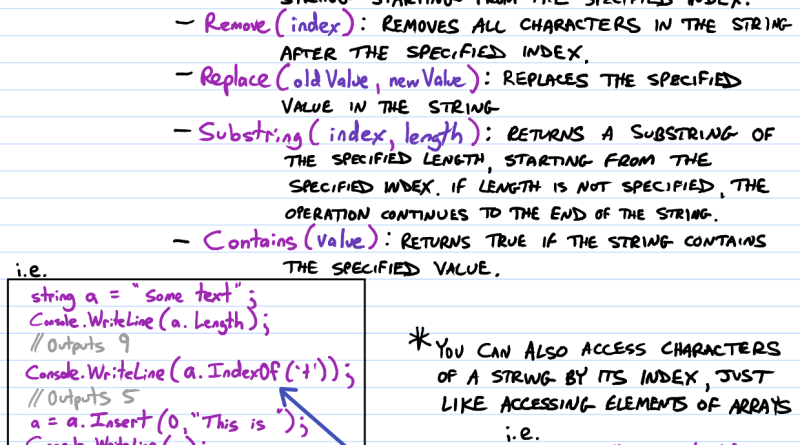 STRING STARTING FROM THE SPECIFIED INDEX.
- Remove(index): REMOVES ALL CHARACTERS IN THE STRING
AFTER THE SPECIFIED INDEX.
- Replace(oldValue, newValue): REPLACES THE SPECIFIED
VALUE IN THE STRING
- Substring(index, length): RETURNS A SUBSTRING OF
THE SPECIFIED LENGTH, STARTING FROM THE
SPECIFIED INDEX. IF LENGTH IS NOT SPECIFIED, THE
OPERATION CONTINUES TO THE END OF THE STRING.
- Contains(value): RETURNS TRUE IF THE STRING CONTAINS
THE SPECIFIED VALUE.
i.e.
string a = "some text";
Console.WriteLine(a.Length);
// Outputs 9
Console.WriteLine(a.IndexOf('t'));
// Outputs 5
a = a.Insert(0,"This is ");
* YOU CAN ALSO ACCESS CHARACTERS
OF A STRING BY ITS INDEX, JUST
LIKE ACCESSING ELEMENTS OF ARRAYS
i.e.